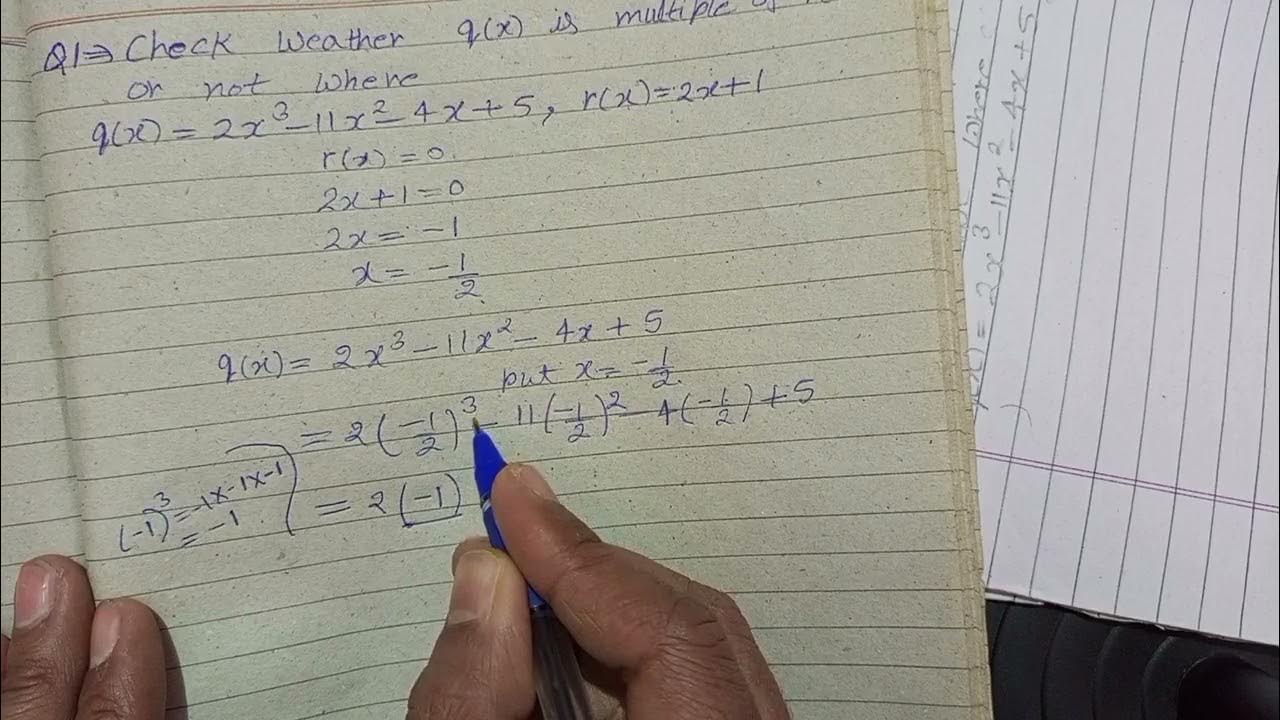 Q1⇒ Check Weather q(x) is multiple of
or not Where
q(x) = 2x³-11x²-4x+5, r(x)=2x+1
r(x) = 0.
2x+1=0
2x = -1
x = -1/2
q(x) = 2x³-11x²-4x+5
put x = -1/2.
= 2(-1/2)³- 11(-1/2)²-4(-1/2)+5
(-1)³ = -1x-1x-1
= -1
= 2(-1)
Where
= 2x³-11x²-4x+5